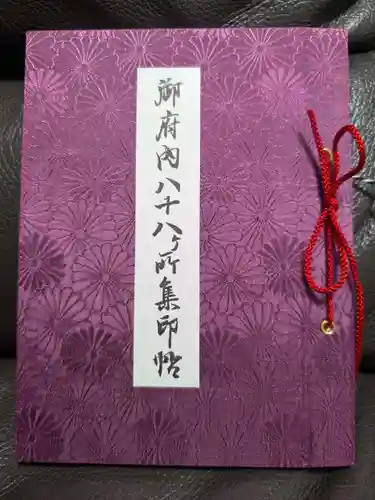 御府内八十八ヶ所集印帖